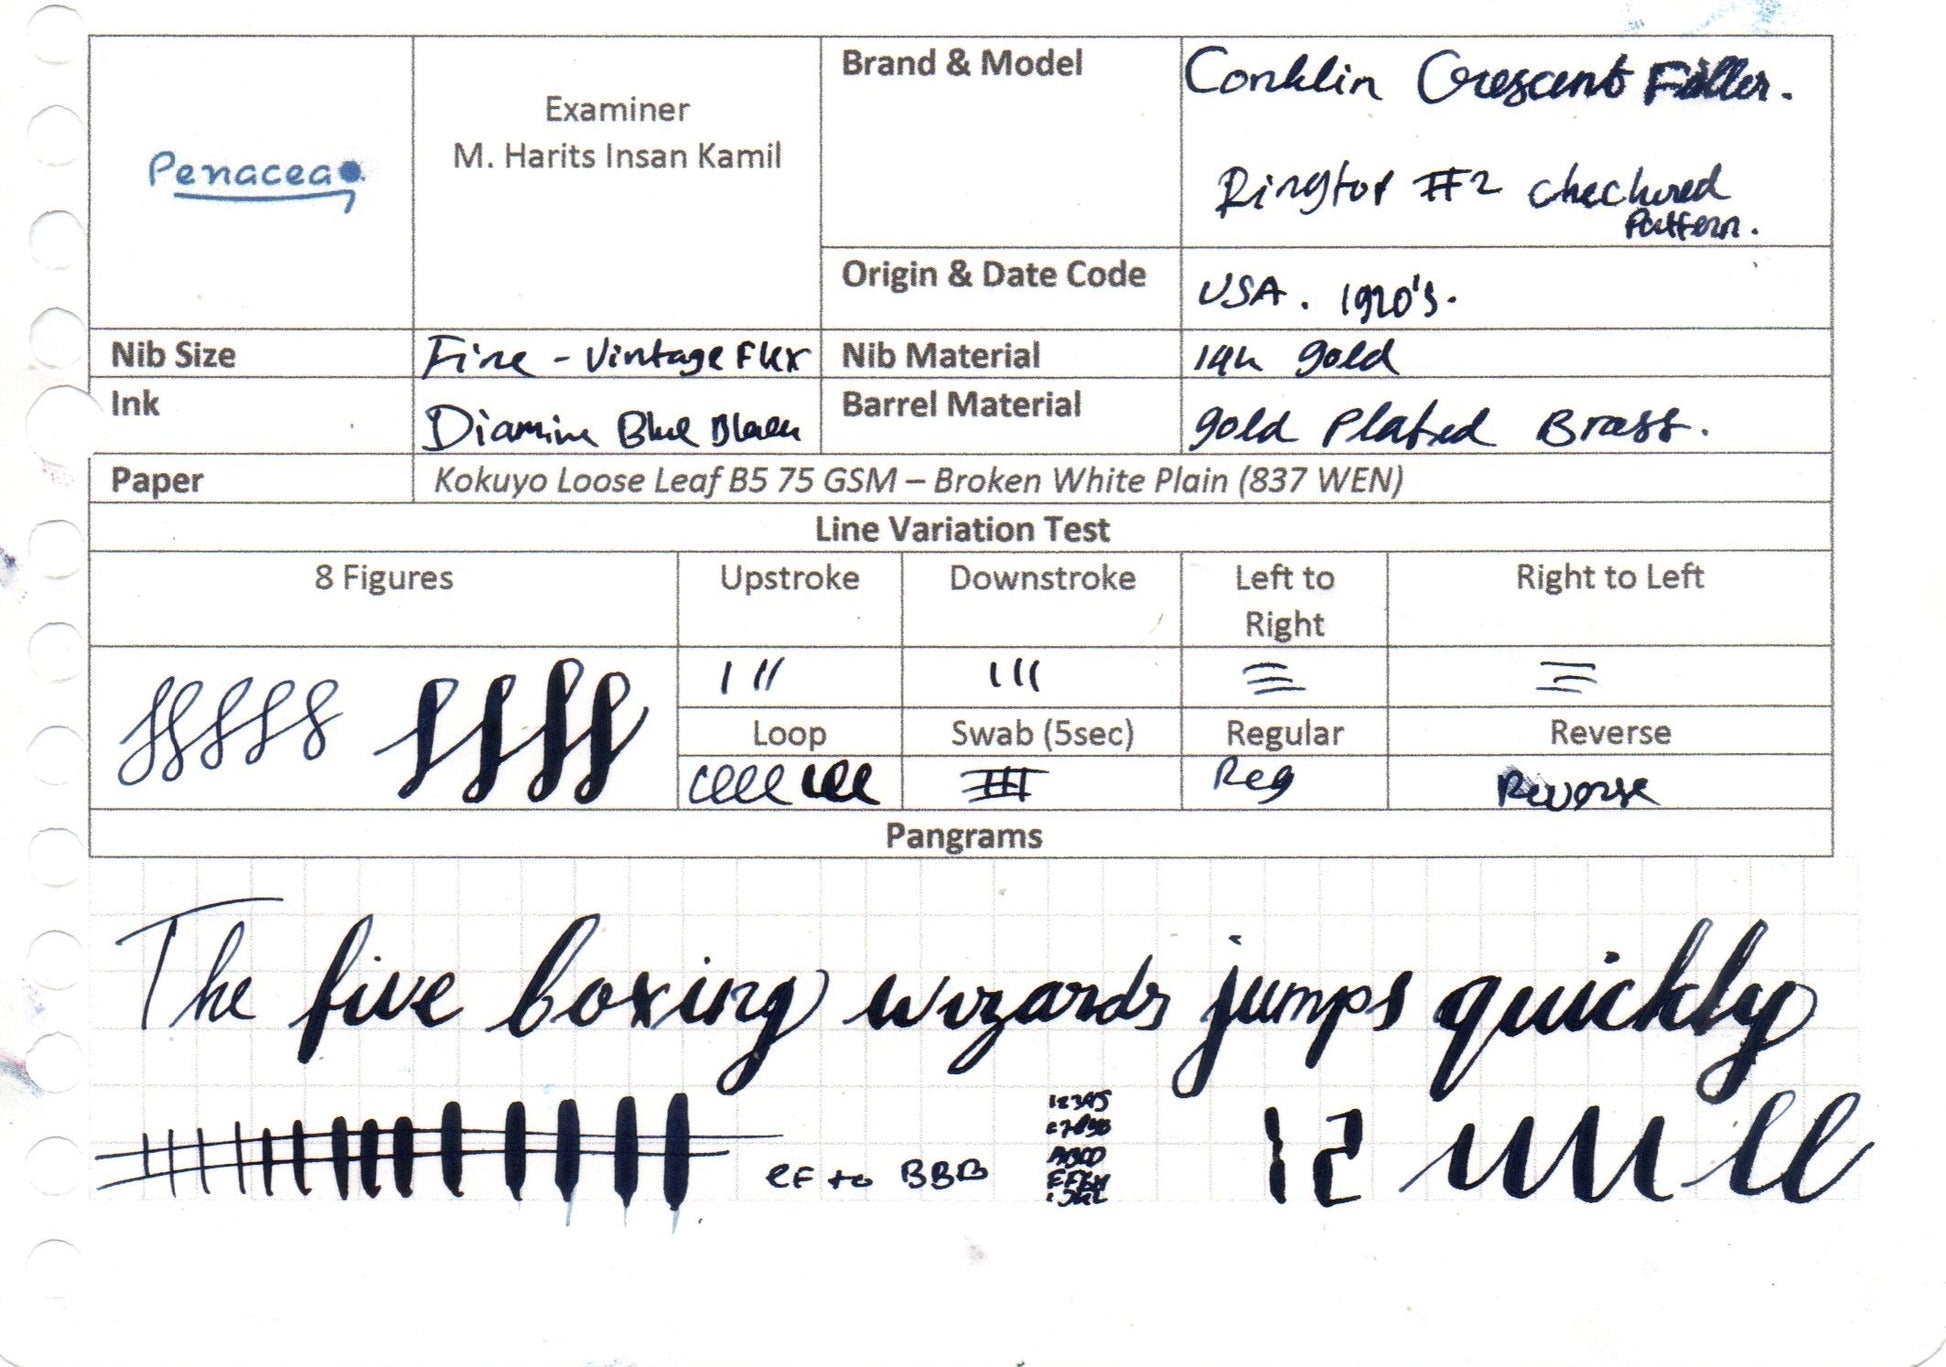 Penacea
Examiner
M. Harits Insan Kamil
Brand & Model
Conklin Crescent Filler.
Ringtop #2 Checkered
Pattern.
Origin & Date Code
USA. 1920's.
Nib Size
Fine - Vintage Flex
Nib Material
14k gold
Ink
Diamine Blue Black
Barrel Material
gold Plated Brass.
Paper
Kokuyo Loose Leaf B5 75 GSM – Broken White Plain (837 WEN)
Line Variation Test
8 Figures
Upstroke
Downstroke
Left to
Right
Right to Left
Loop
Swab (5sec)
Regular
Reverse
Reg
Reverse
Pangrams
The five boxing wizards jumps quickly
EF to BBB
12345
67890
ABCD
EFGH
IJKL
12